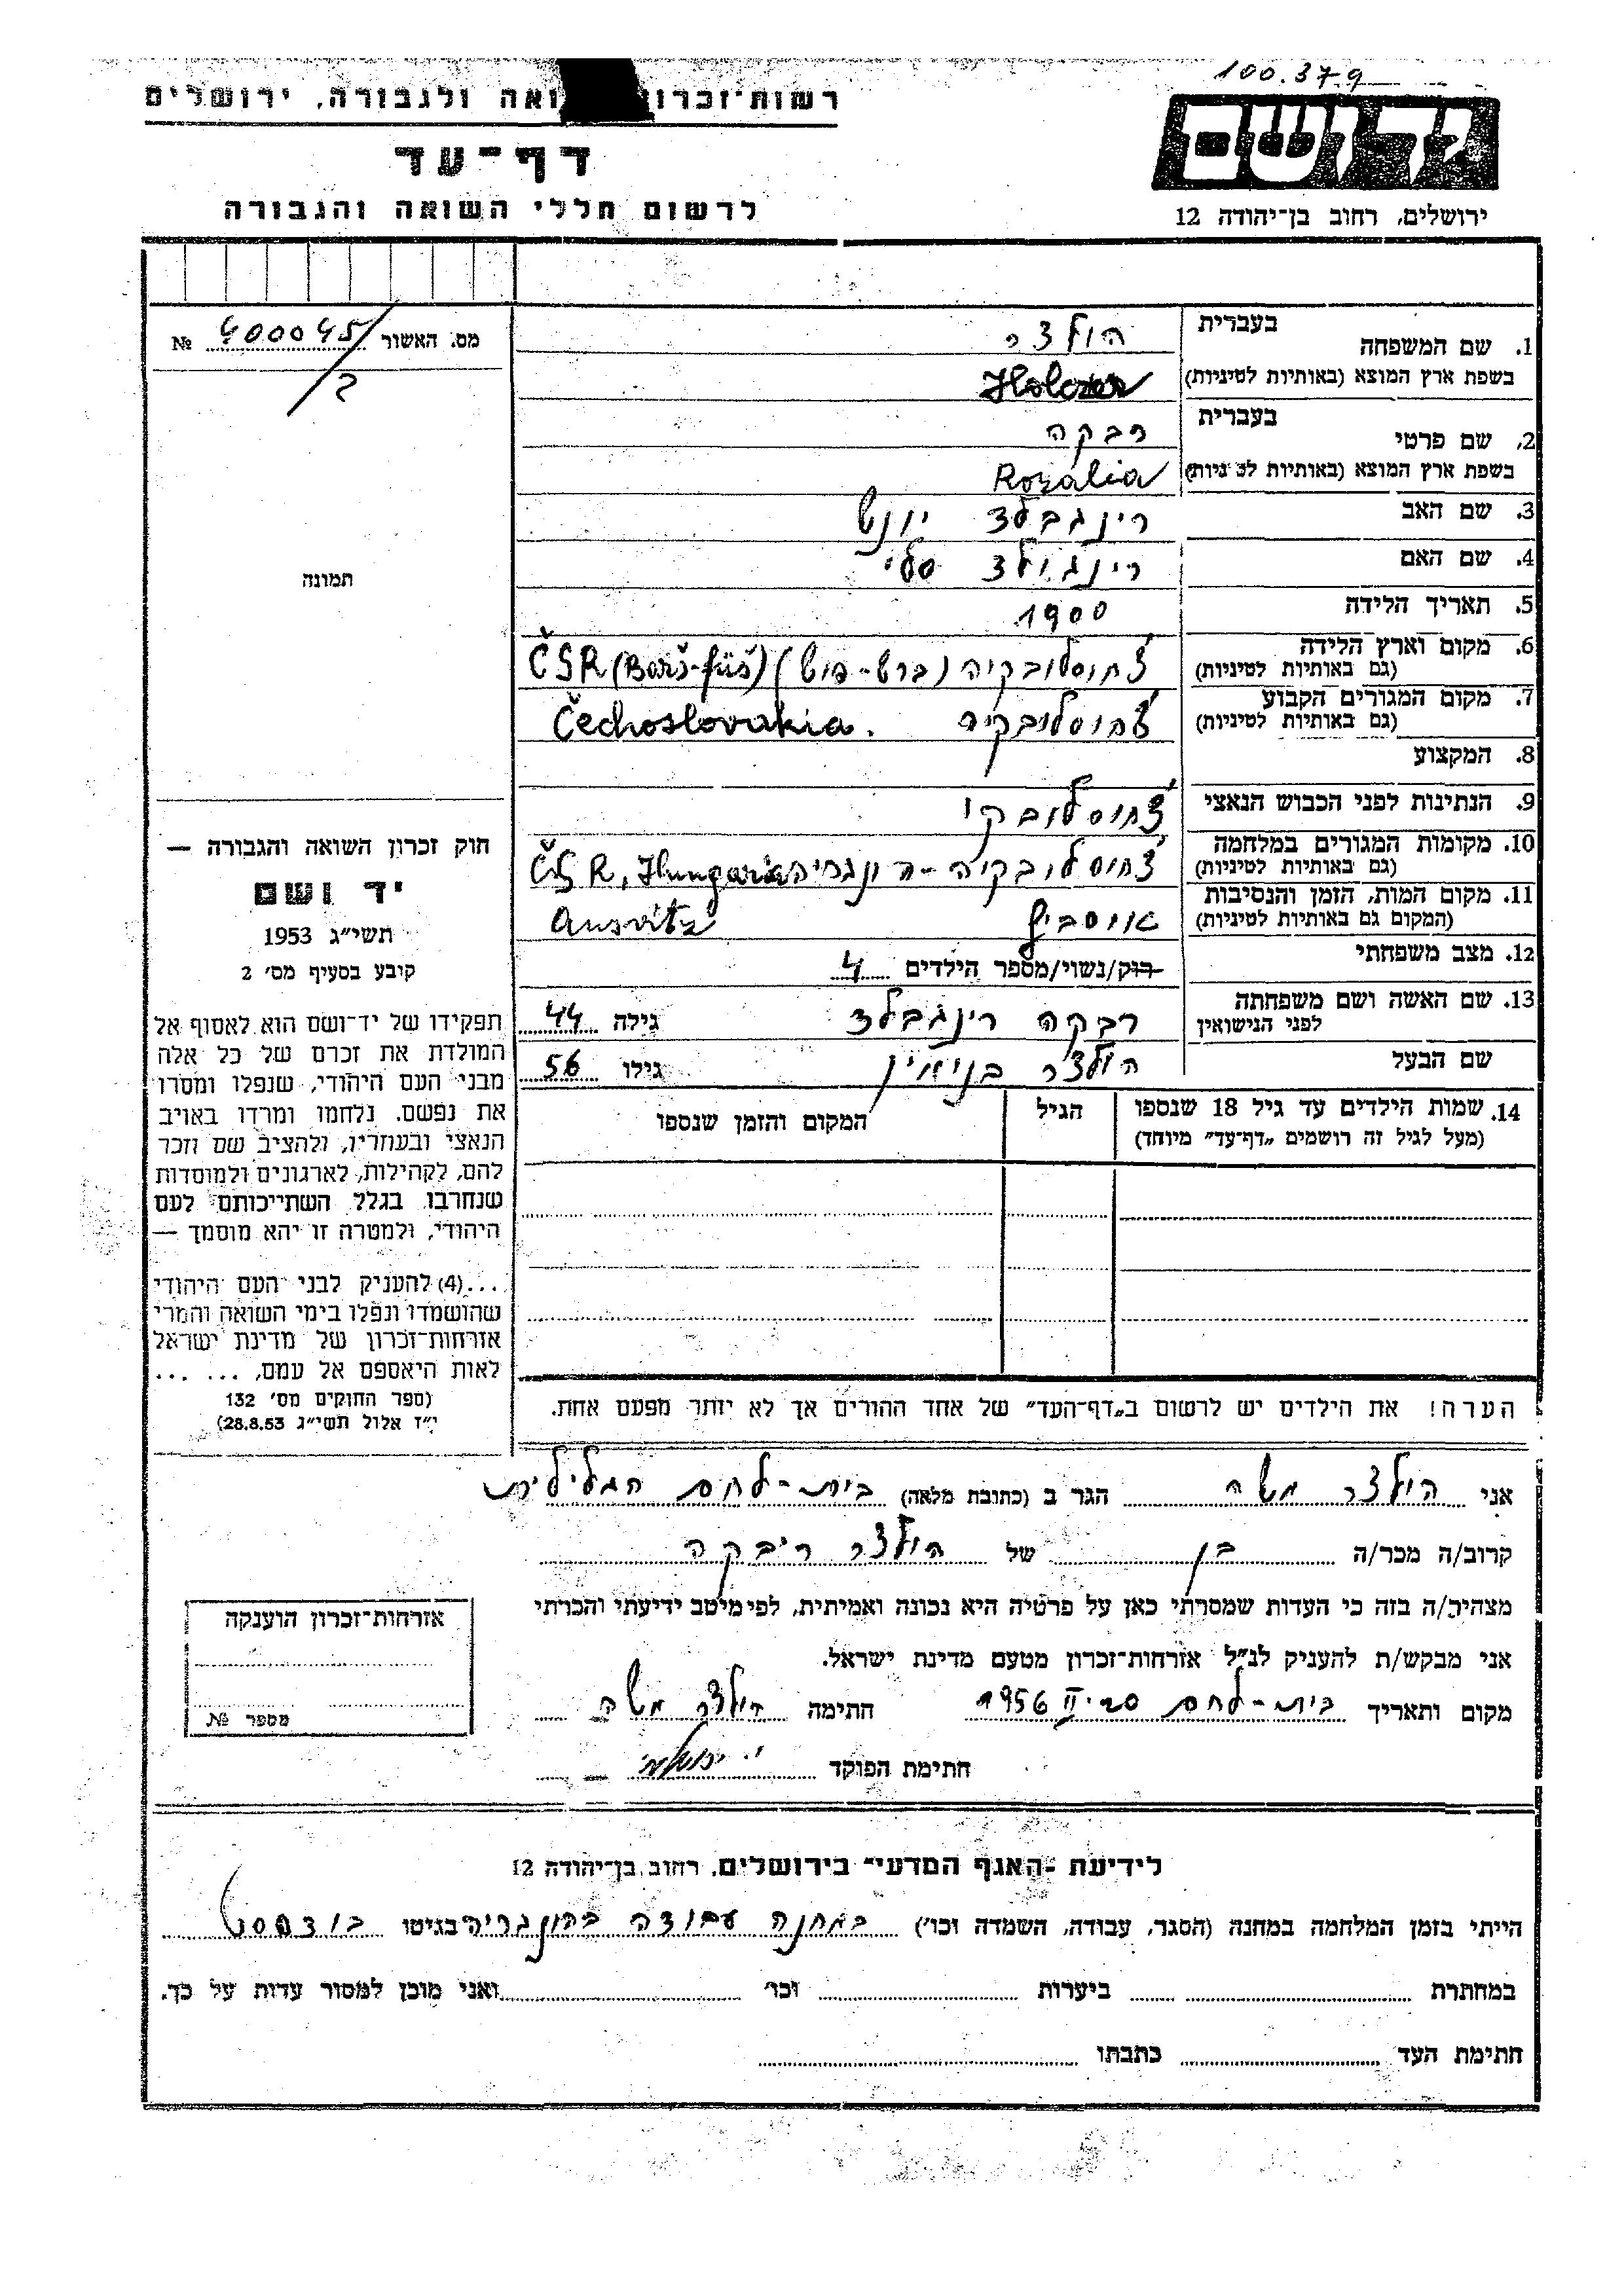 100.379
רשות־זכרון ואה ולגבורה, ירושלים
ידושם
דף־עד
לרשום חללי השואה והגבורה
ירושלים, רחוב בן־יהודה 12
מס. האשור 400045/2 №
תמונה
1. שם המשפחה
בעברית
הולצר
בשפת ארץ המוצא (באותיות לטיניות)
Holczer
2. שם פרטי
בעברית
רבקה
בשפת ארץ המוצא (באותיות לטיניות)
Rozalia
3. שם האב
רינגבלד יונש
4. שם האם
רינגולד סלי
5. תאריך הלידה
1900
6. מקום וארץ הלידה
(גם באותיות לטיניות)
צ'חוסלובקיה (ברש-פוש) ČSR (Borš-füš)
7. מקום המגורים הקבוע
(גם באותיות לטיניות)
צ'חוסלובקיה Čechoslovakia.
8. המקצוע
9. הנתינות לפני הכבוש הנאצי
צ'חוסלובקי
10. מקומות המגורים במלחמה
(גם באותיות לטיניות)
צ'חוסלובקיה-הונגריה ČSR, Hungaria
11. מקום המות, הזמן והנסיבות
(המקום גם באותיות לטיניות)
אוסביץ Ausvitz
12. מצב משפחתי
רוק/נשוי/מספר הילדים 4
13. שם האשה ושם משפחתה
לפני הנישואין
רבקה רינגבלד גילה 44
שם הבעל
הולצר בנימין גילו 56
14. שמות הילדים עד גיל 18 שנספו
(מעל לגיל זה רושמים „דף־עד" מיוחד)
הגיל
המקום והזמן שנספו
חוק זכרון השואה והגבורה —
יד ושם
תשי"ג 1953
קובע בסעיף מס' 2
תפקידו של יד־ושם הוא לאסוף אל
המולדת את זכרם של כל אלה
מבני העם היהודי, שנפלו ומסרו
את נפשם, נלחמו ומרדו באויב
הנאצי ובעוזריו, ולהציב שם וזכר
להם, לקהילות, לארגונים ולמוסדות
שנחרבו בגלל השתייכותם לעם
היהודי, ולמטרה זו יהא מוסמך —
...(4) להעניק לבני העם היהודי
שהושמדו ונפלו בימי השואה והמרי
אזרחות־זכרון של מדינת ישראל
לאות היאספם אל עמם, ... ...
(ספר החוקים מס' 132
י"ז אלול תשי"ג 28.8.53)
הערה! את הילדים יש לרשום ב„דף־העד" של אחד ההורים אך לא יותר מפעם אחת.
אני הולצר משה הגר ב (כתובת מלאה) בית-לחם הגלילית
קרוב/ה מכר/ה בן של הולצר ריבקה
מצהיר/ה בזה כי העדות שמסרתי כאן על פרטיה היא נכונה ואמיתית, לפי מיטב ידיעתי והכרתי
אני מבקש/ת להעניק לנ"ל אזרחות־זכרון מטעם מדינת ישראל.
מקום ותאריך בית-לחם 20.II 1956 חתימה הולצר משה
חתימת הפוקד
אזרחות־זכרון הוענקה
מספר №
לידיעת ־האגף המדעי־ בירושלים, רחוב בן־יהודה 12
הייתי בזמן המלחמה במחנה (הסגר, עבודה, השמדה וכו') במחנה עבודה בהונגריה בגיטו בודפסט
במחתרת ביערות וכו' ואני מוכן למסור עדות על כך.
חתימת העד כתבתו